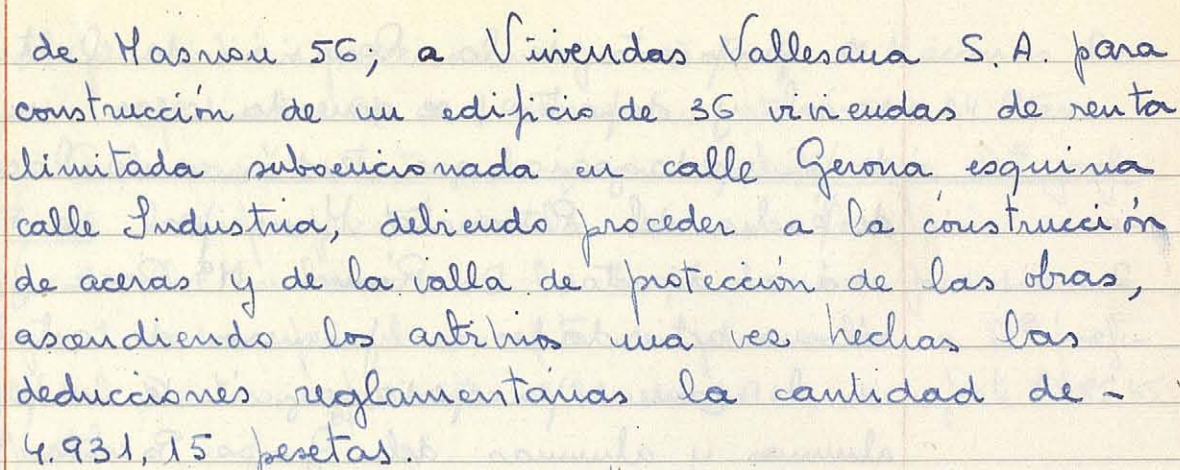 de Masnou 56; a Viviendas Vallesana S.A. para
construcción de un edificio de 36 viviendas de renta
limitada subvencionada en calle Gerona esquina
calle Industria, debiendo proceder a la construcción
de aceras y de la valla de protección de las obras,
ascendiendo los arbitrios una vez hechas las
deducciones reglamentarias la cantidad de -
4.931,15 pesetas.